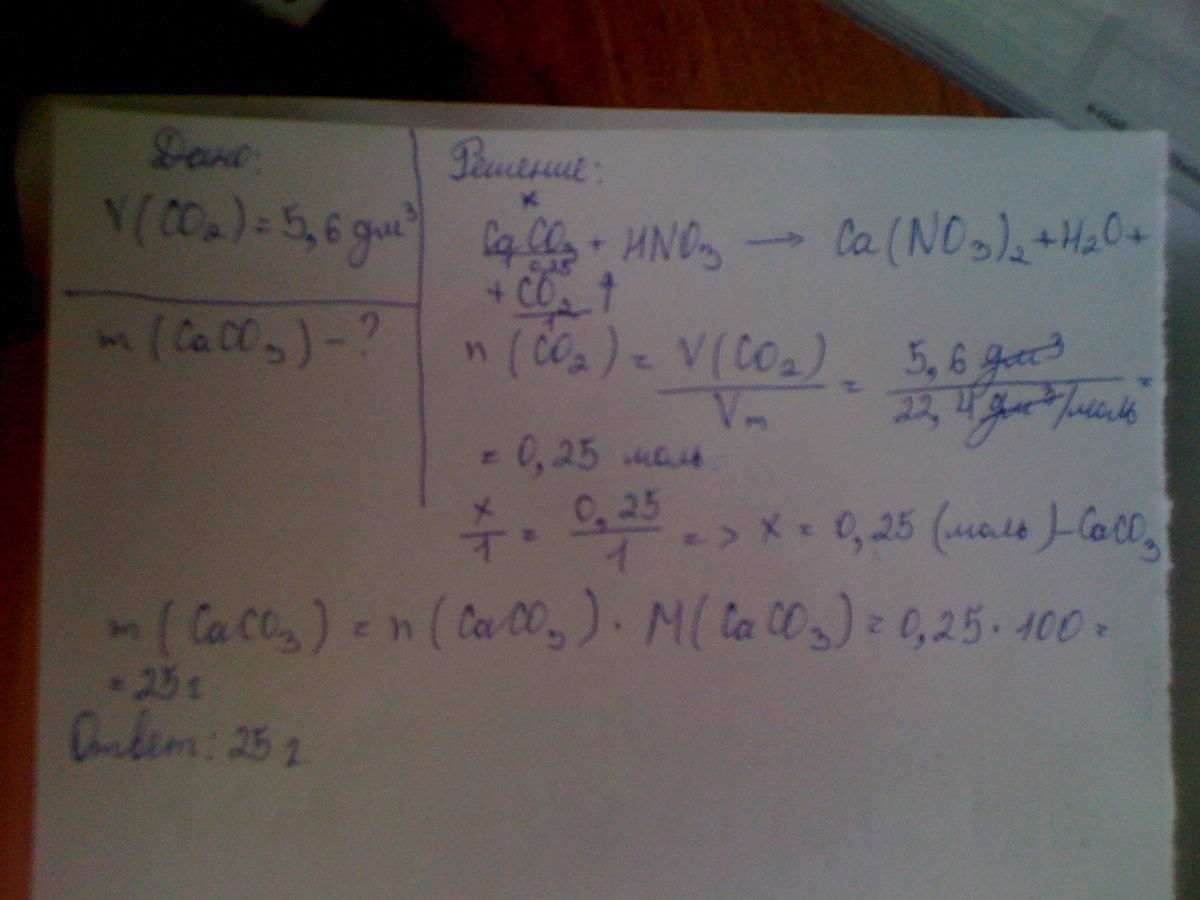 Дано:
V(CO₂) = 5,6 дм³
m(CaCO₃) - ?
Решение:
x
CaCO₃ + HNO₃ → Ca(NO₃)₂ + H₂O +
1 0,25
+ CO₂ ↑
1
n(CO₂) = V(CO₂) / Vm = 5,6 дм³ / 22,4 дм³/моль =
= 0,25 моль.
x/1 = 0,25/1 => x = 0,25 (моль) - CaCO₃
m(CaCO₃) = n(CaCO₃) · M(CaCO₃) = 0,25 · 100 =
= 25 г
Ответ: 25 г